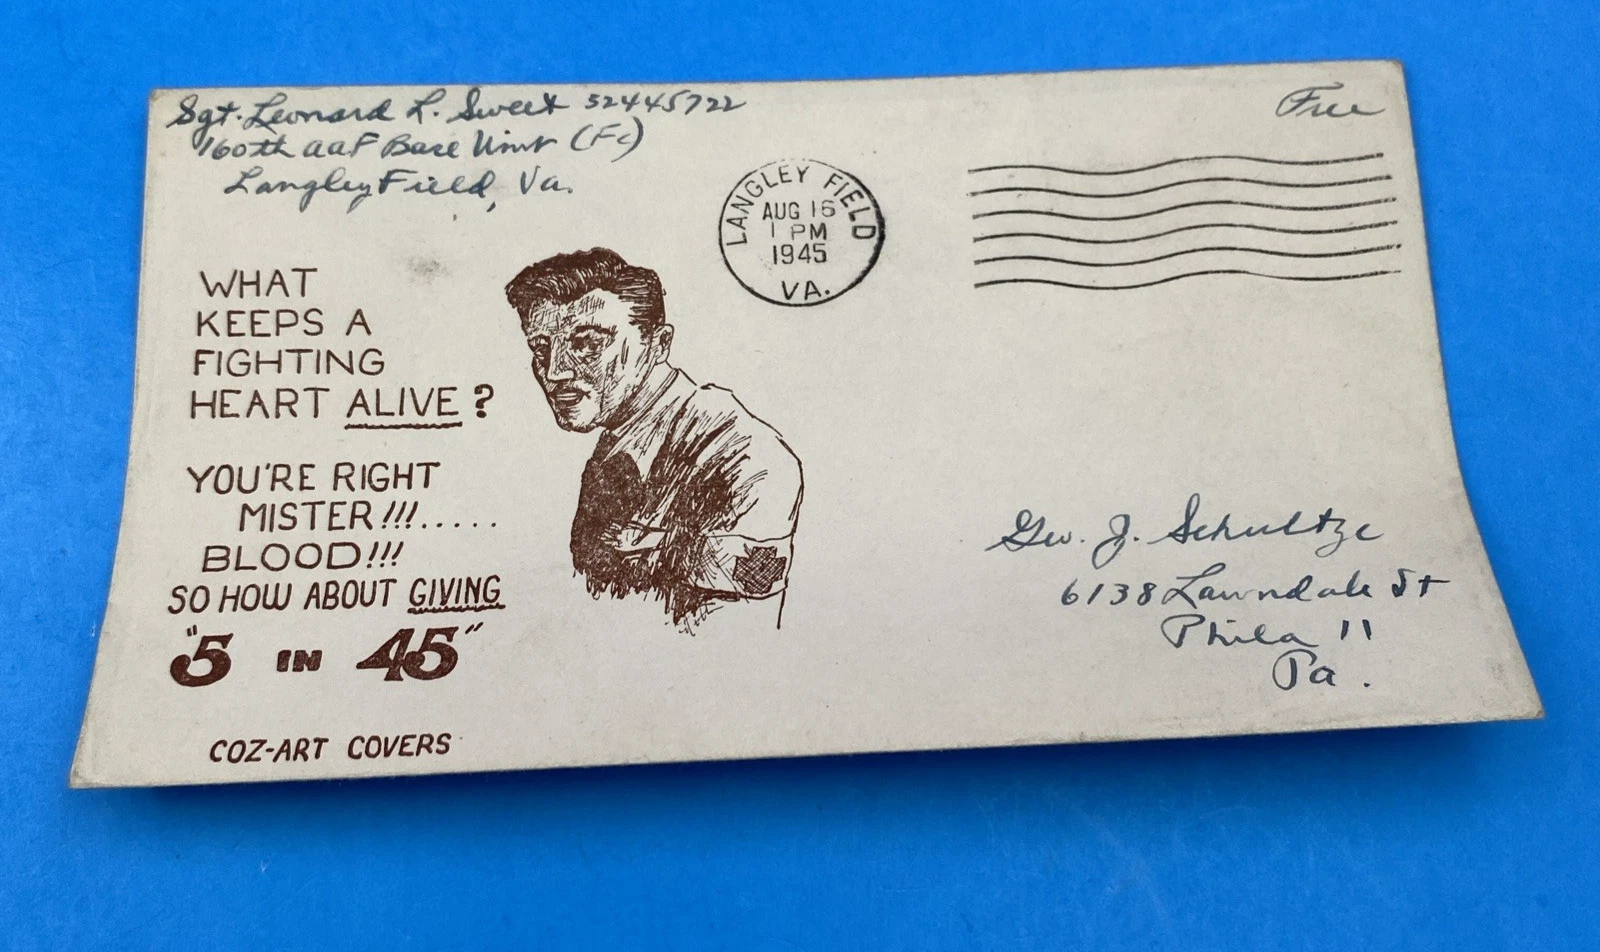 Sgt. Leonard L. Sweet 52445722
160th AAF Base Unit (Fc)
Langley Field, Va.
Free
LANGLEY FIELD
AUG 16
1 PM
1945
VA.
WHAT
KEEPS A
FIGHTING
HEART ALIVE?
YOU'RE RIGHT
MISTER!!!.....
BLOOD!!!
SO HOW ABOUT GIVING
"5 IN 45"
COZ-ART COVERS
Geo. J. Schultze
6138 Lawndale St
Phila 11
Pa.